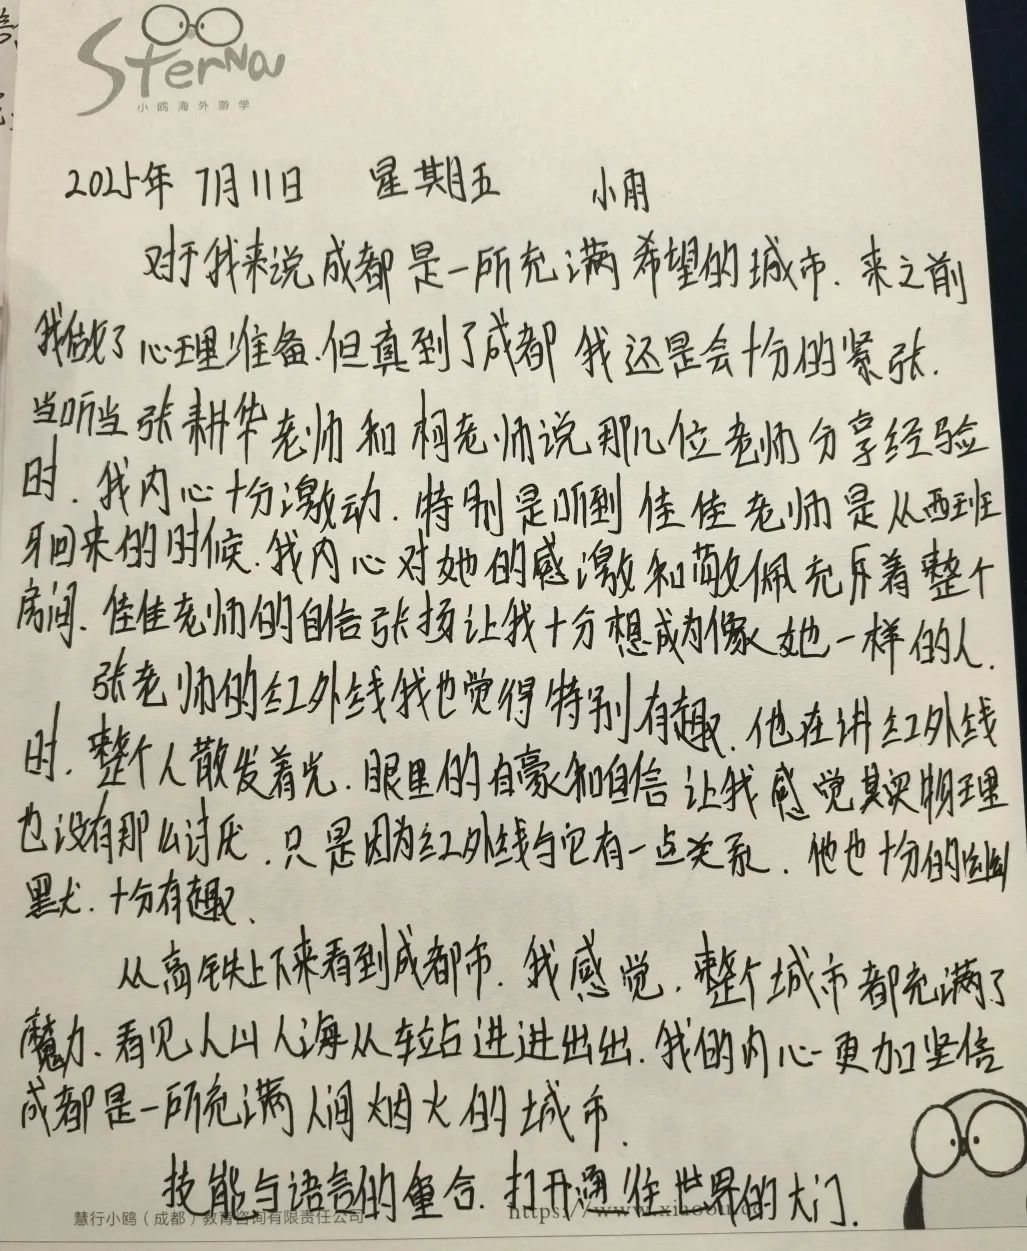 Sterna
小鸥海外游学
2025年 7月11日 星期五 小雨
对于我来说成都是一所充满希望的城市. 来之前
我做好了心理准备.但真到了成都 我还是会十分的紧张.
当听当张耕华老师和柯老师说那几位老师分享经验
时. 我内心十分激动. 特别是听到佳佳老师是从西班
牙回来的时候.我内心对她的感激和敬佩充斥着整个
房间. 佳佳老师的自信张扬让我十分想成为像她一样的人.
张老师的红外线我也觉得特别有趣. 他在讲红外线
时. 整个人散发着光. 眼里的自豪和自信让我感觉其实物理
也没有那么讨厌. 只是因为红外线与它有一点关系. 他也十分的幽
默. 十分有趣.
从高铁上下来看到成都市. 我感觉. 整个城市都充满了
魔力. 看见人山人海从车站进进出出. 我的内心更加坚信
成都是一所充满人间烟火的城市.
技能与语言的重合. 打开通往世界的大门.
慧行小鸥（成都）教育咨询有限责任公司